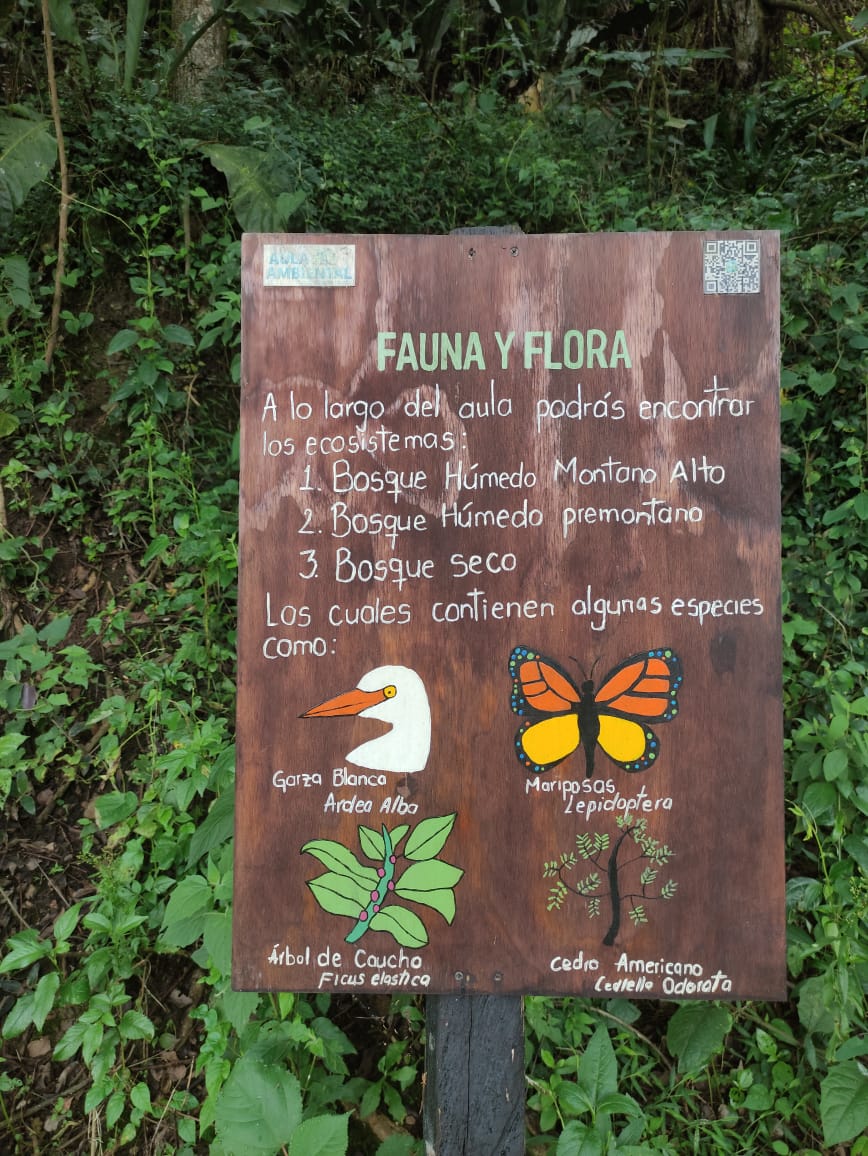 AULA
AMBIENTAL
FAUNA Y FLORA
A lo largo del aula podrás encontrar
los ecosistemas:
1. Bosque Húmedo Montano Alto
2. Bosque Húmedo premontano
3. Bosque seco
Los cuales contienen algunas especies
como:
Garza Blanca
Ardea Alba
Mariposas
Lepidoptera
Árbol de Caucho
Ficus elastica
Cedro Americano
Cedlella Odorata